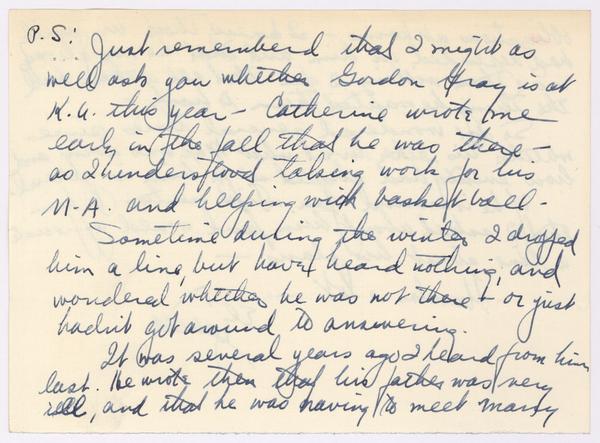 P.S:
.... Just rememberd that I might as
well ask you whether Gordon Gray is at
K.U. this year — Catherine wrote me
early in the fall that he was there —
as I understood taking work for his
M-A. and helping with basket ball -
Sometime during the winter I dropped
him a line, but have heard nothing, and
wondered whether he was not there — or just
hadn't got around to answering.
It was several years ago I heard from him
last. He wrote then that his father was very
ill, and that he was having to meet many